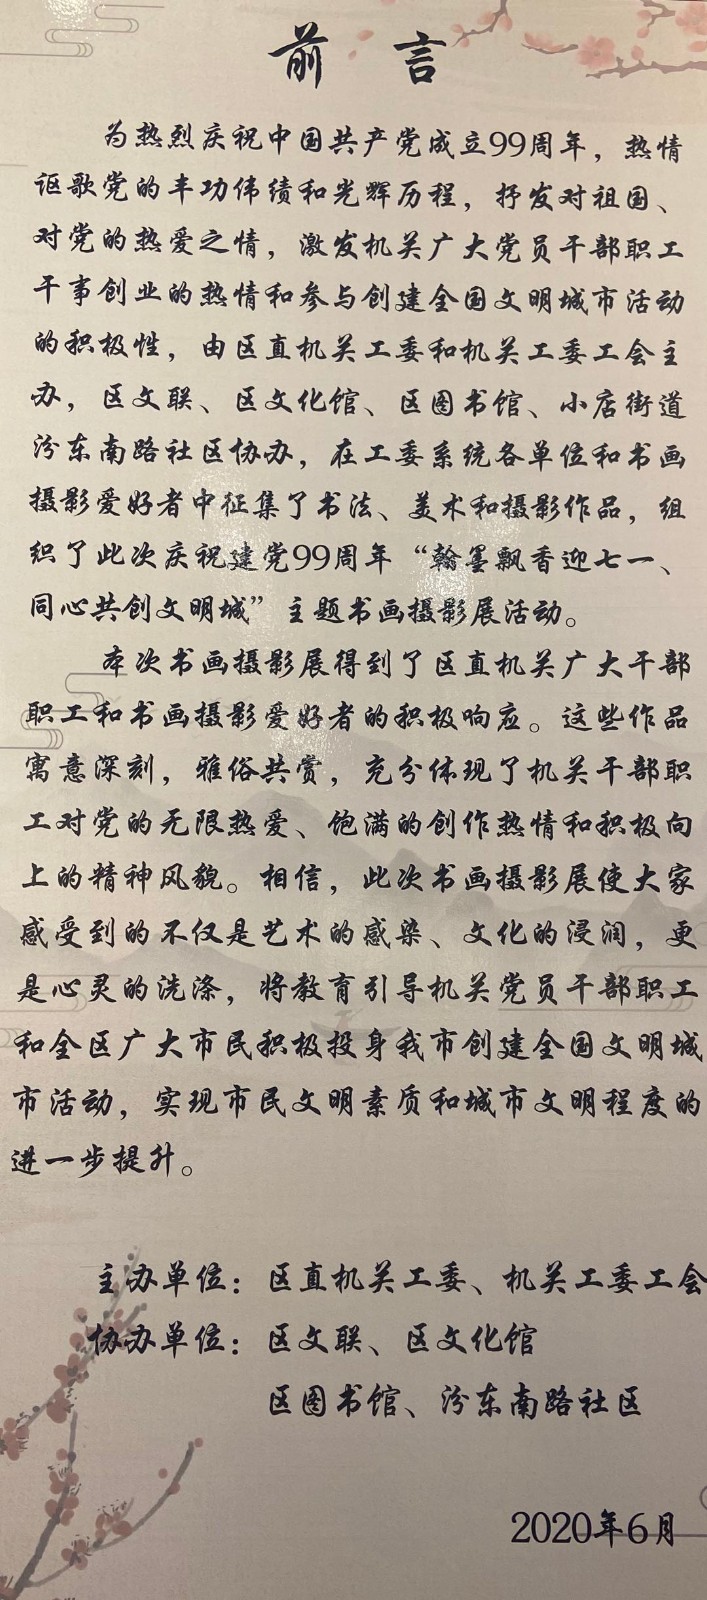 前 言
为热烈庆祝中国共产党成立99周年，热情
讴歌党的丰功伟绩和光辉历程，抒发对祖国、
对党的热爱之情，激发机关广大党员干部职工
干事创业的热情和参与创建全国文明城市活动
的积极性，由区直机关工委和机关工委工会主
办，区文联、区文化馆、区图书馆、小店街道
汾东南路社区协办，在工委系统各单位和书画
摄影爱好者中征集了书法、美术和摄影作品，组
织了此次庆祝建党99周年“翰墨飘香迎七一、
同心共创文明城”主题书画摄影展活动。
本次书画摄影展得到了区直机关广大干部
职工和书画摄影爱好者的积极响应。这些作品
寓意深刻，雅俗共赏，充分体现了机关干部职
工对党的无限热爱、饱满的创作热情和积极向
上的精神风貌。相信，此次书画摄影展使大家
感受到的不仅是艺术的感染、文化的浸润，更
是心灵的洗涤，将教育引导机关党员干部职工
和全区广大市民积极投身我市创建全国文明城
市活动，实现市民文明素质和城市文明程度的
进一步提升。
主办单位：区直机关工委、机关工委工会
协办单位：区文联、区文化馆
区图书馆、汾东南路社区
2020年6月